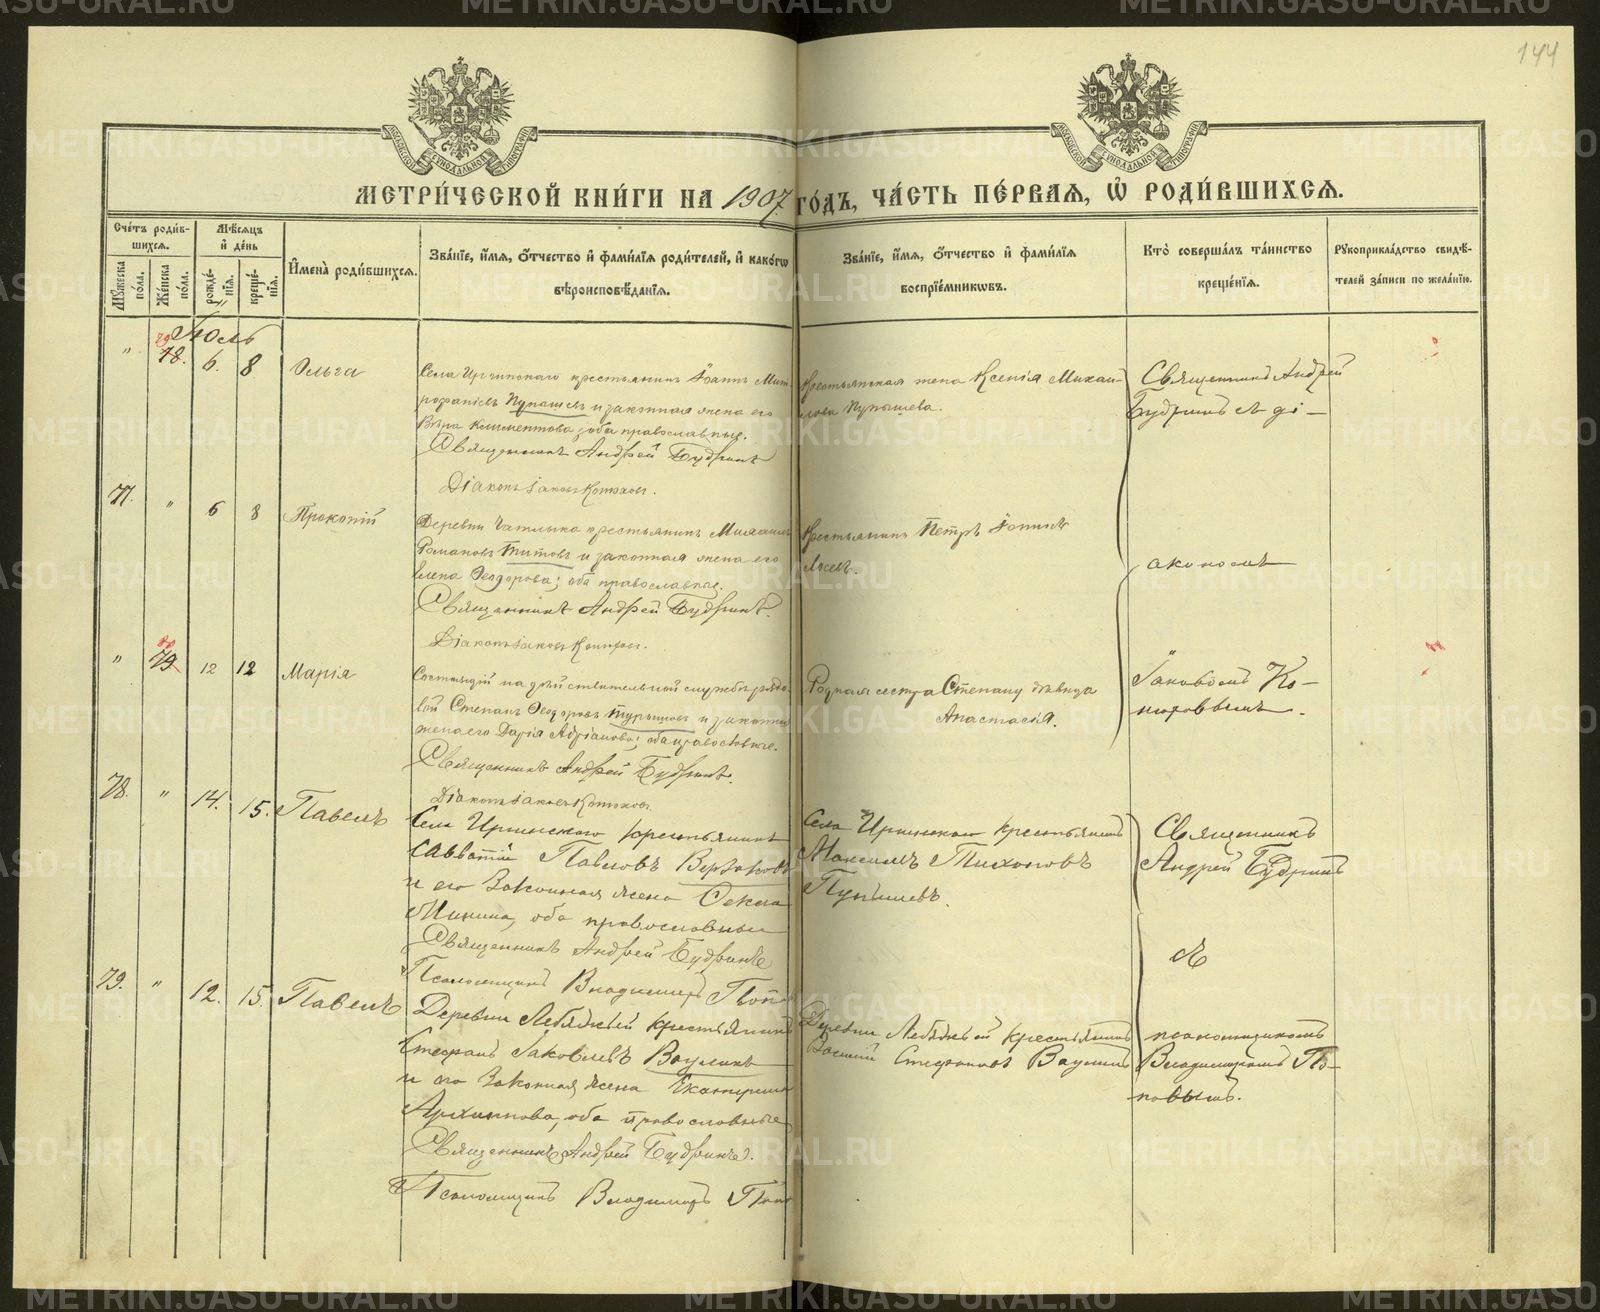 144
МЕТРИ́ЧЕСКОЙ КНИ́ГИ НА 1907 ГО́ДЪ, ЧА́СТЬ ПЕ́РВАЯ, Ѡ҆ РОДИ́ВШИХСЯ.
Сче́тъ роди́вшихся.
Мѣ́сяцъ и҆ де́нь
Мꙋ́жеска по́ла.
Же́нска по́ла.
рожде́нїя.
креще́нїя.
И҆мена̀ роди́вшихся.
Зва́нїе, и҆́мя, ѻ҆́тчество и҆ фами́лїя роди́телей, и҆ како́гѡ вѣроисповѣ́данїя.
Зва́нїе, и҆́мя, ѻ҆́тчество и҆ фами́лїя воспрїе́мникѡвъ.
Кто̀ соверша́лъ та́инство креще́нїя.
Рꙋкоприкла́дство свидѣ́телей за́писи по жела́нїю.
Іюль
" 79 78. 6. 8 Ольга
Села Иргинскаго крестьянинъ Іоаннъ Мит-
рофановъ Пупышевъ и законная жена его
Вѣра Климентова; оба православные.
Священникъ Андрей Будринъ
Діаконъ Іаковъ Котюховъ.
Крестьянская жена Ксенія Михаи-
лова Пупышева.
Священникъ Андрей
Будринъ съ ді-
77. " 6 8 Прокопій
Деревни Чатлыка крестьянинъ Михаилъ
Романовъ Титовъ и законная жена его
Елена Ѳеодорова; оба православные.
Священникъ Андрей Будринъ.
Діаконъ Іаковъ Котюховъ.
Крестьянинъ Петръ
акономъ
" 80 79. 12 12 Марія
Состоящій на дѣйствительной службѣ рядо-
вой Степанъ Ѳеодоровъ и законная
жена его Дарія Адріанова; оба православные.
Священникъ Андрей Будринъ.
Діаконъ Іаковъ Котюховъ.
Родная сестра Степану дѣвица
Анастасія.
Іаковомъ Ко-
тюховымъ.
78. " 14. 15. Павелъ
Села Иргинскаго крестьянинъ
Савватій Павловъ
и его законная жена Ѳекла
Минина, оба православные
Священникъ Андрей Будринъ
Псаломщикъ Владимиръ Поп
Села Иргинскаго крестьянинъ
Максимъ Тихоновъ
Пупышевъ.
Священникъ
Андрей Будринъ
съ
79. " 12. 15. Павелъ
Деревни Лебяжьей крестьянинъ
Стефанъ Іаковлевъ Ваулинъ
и его законная жена Екатерина
Архиппова, оба православные
Священникъ Андрей Будринъ.
Псаломщикъ Владимиръ Поп
Деревни Лебяжьей крестьянинъ
Василій Стефановъ Ваулинъ
псаломщикомъ
Владимиромъ По-
повымъ.
METRIKI.GASO-URAL.RU